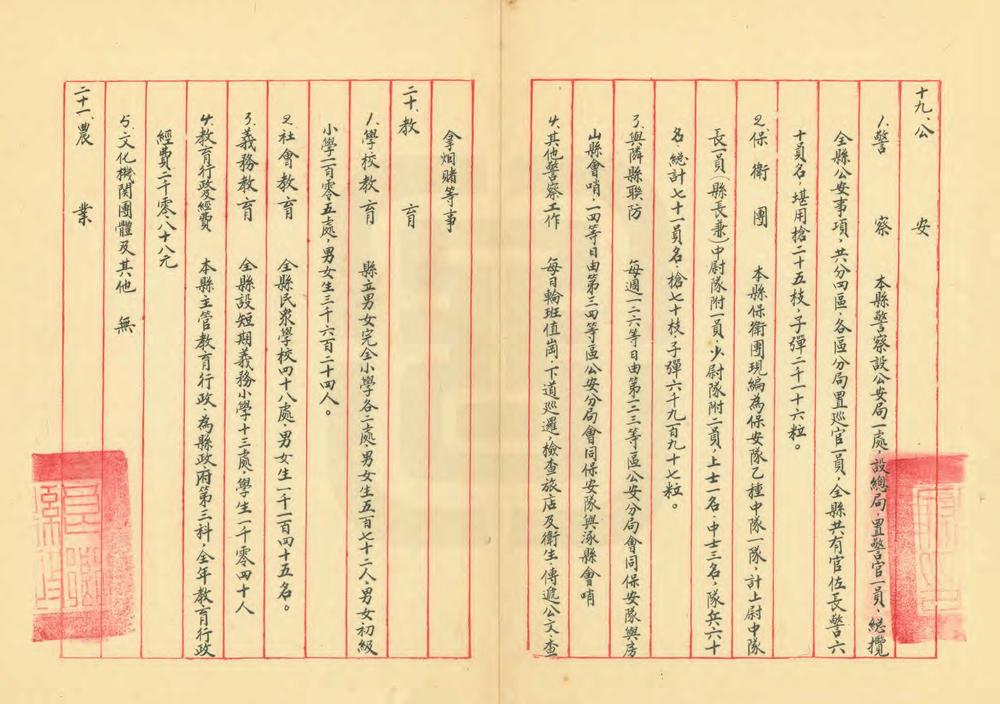 十九、公安
1.警察 本縣警察設公安局一處，設總局，置警官一員，總攬
全縣公安事項，共分四區，各區分局置巡官一員，全縣共有官佐長警六
十員名，堪用槍二十五枝，子彈二千一十六粒。
2.保衛團 本縣保衛團現編為保安隊乙種中隊一隊，計上尉中隊
長一員（縣長兼）中尉隊附一員，少尉隊附二員，上士一名，中士三名，隊兵六十
名，總計七十一員名，槍七十枝，子彈六千九百九十七粒。
3.與隣縣聯防 每週一二六等日由第一二三等區公安分局會同保安隊與房
山縣會哨，一四等日由第三四等區公安分局會同保安隊與涿縣會哨
4.其他警察工作 每日輪班值崗，下道巡邏，檢查旅店及衛生，傳遞公文查
拿烟賭等事
二十、教育
1.學校教育 縣立男女完全小學各二處，男女生五百七十二人，男女初級
小學一百零五處，男女生三千六百二十四人。
2.社會教育 全縣民眾學校四十八處，男女生一千一百四十五名。
3.義務教育 全縣設短期義務小學十三處，學生一千零四十人
4.教育行政及經費 本縣主管教育行政，為縣政府第三科，全年教育行政
經費二千零八十八元
5.文化機関團體及其他 無
二十一、農業